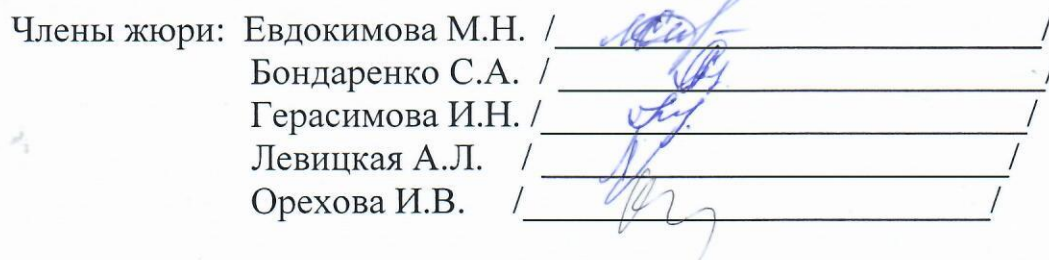 Члены жюри: Евдокимова М.Н. /____________________________/
Бондаренко С.А. /____________________________/
Герасимова И.Н. /____________________________/
Левицкая А.Л. /____________________________/
Орехова И.В. /____________________________/